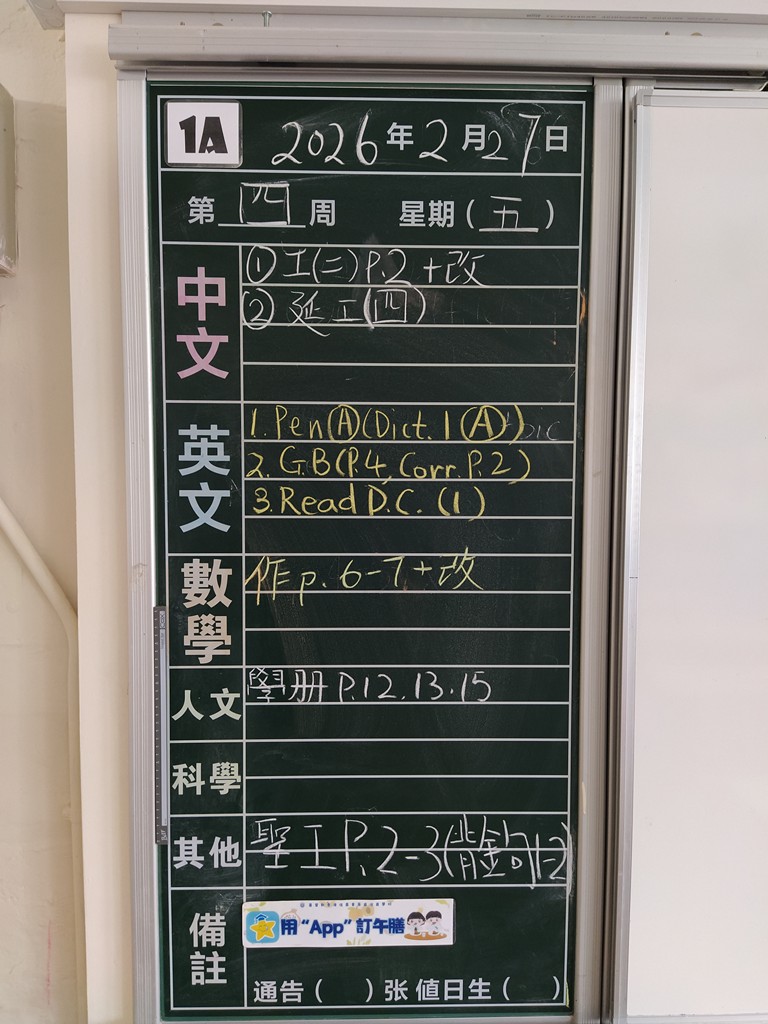 1A 2026年2月27日
第四周 星期(五)
中文
①工(二)P.2+改
②延工(四)
英文
1.Pen Ⓐ(Dict.1 Ⓐ)
2.G.B(P.4,Corr.P.2)
3.Read D.C.(1)
數學
作p.6-7+改
人文
學册P.12.13.15
科學
其他
聖工P.2-3(背金句1-2)
備註
用“App”訂午膳
通告( )张 值日生( )